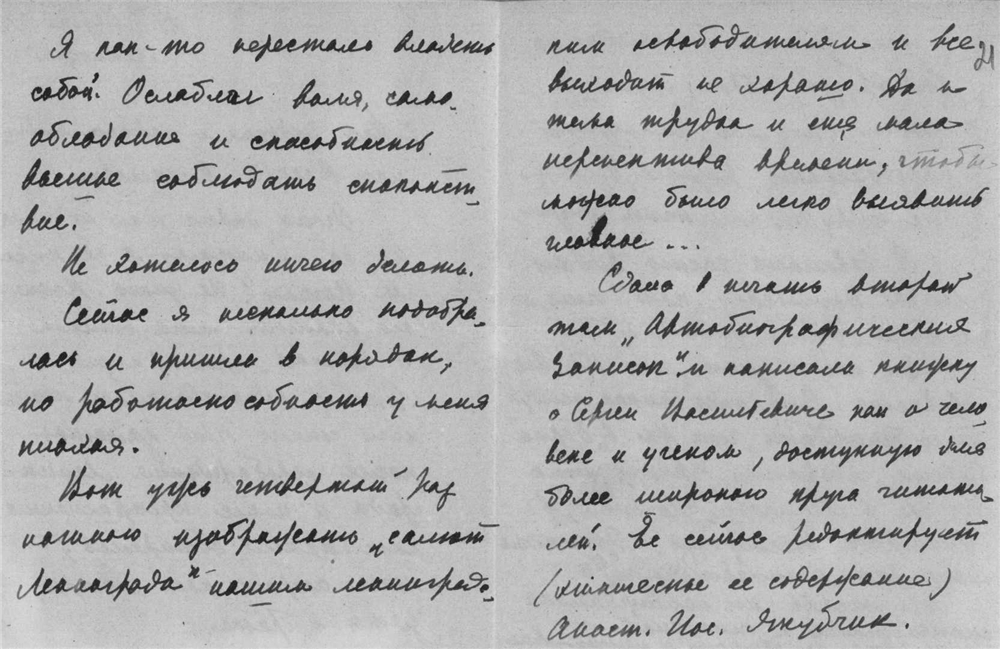 Я как-то перестала владеть
собой. Ослабла воля, само-
обладание и способность
всегда соблюдать спокойст-
вие.
Не хотелось ничего делать.
Сейчас я несколько подобра-
лась и пришла в порядок,
но работоспособность у меня
плохая.
Вот уже четвертый раз
начинаю изображать „салют
Ленинграда" нашим ленинград-
ским освободителям и все
выходит не хорошо. Да и
тема трудна и еще мала
перспектива времени, чтобы
можно было легко выявить
главное...
Сдала в печать второй
том „Автобиографических
Записок" и написала книжку
о Сергее Васильевиче как о чело
веке и ученом, доступную для
более широкого круга читате-
лей. Ее сейчас редактирует
(химическое ее содержание)
Анаст. Иос. Якубчик.
21